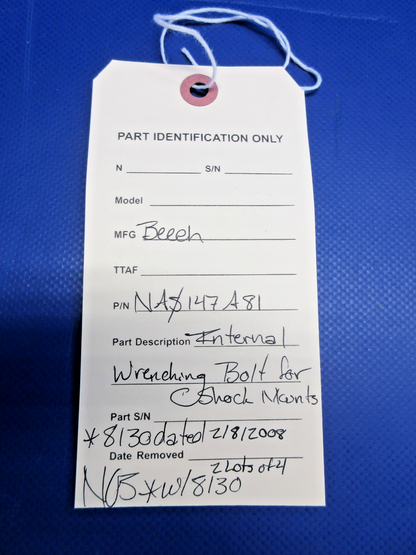 PART IDENTIFICATION ONLY
N S/N
Model
MFG Beech
TTAF
P/N NAS147A81
Part Description Internal
Wrenching Bolt for
Shock Mounts
Part S/N
*8130 dated 2/8/2008
Date Removed
2 Lots of 4
NOS *W/8130